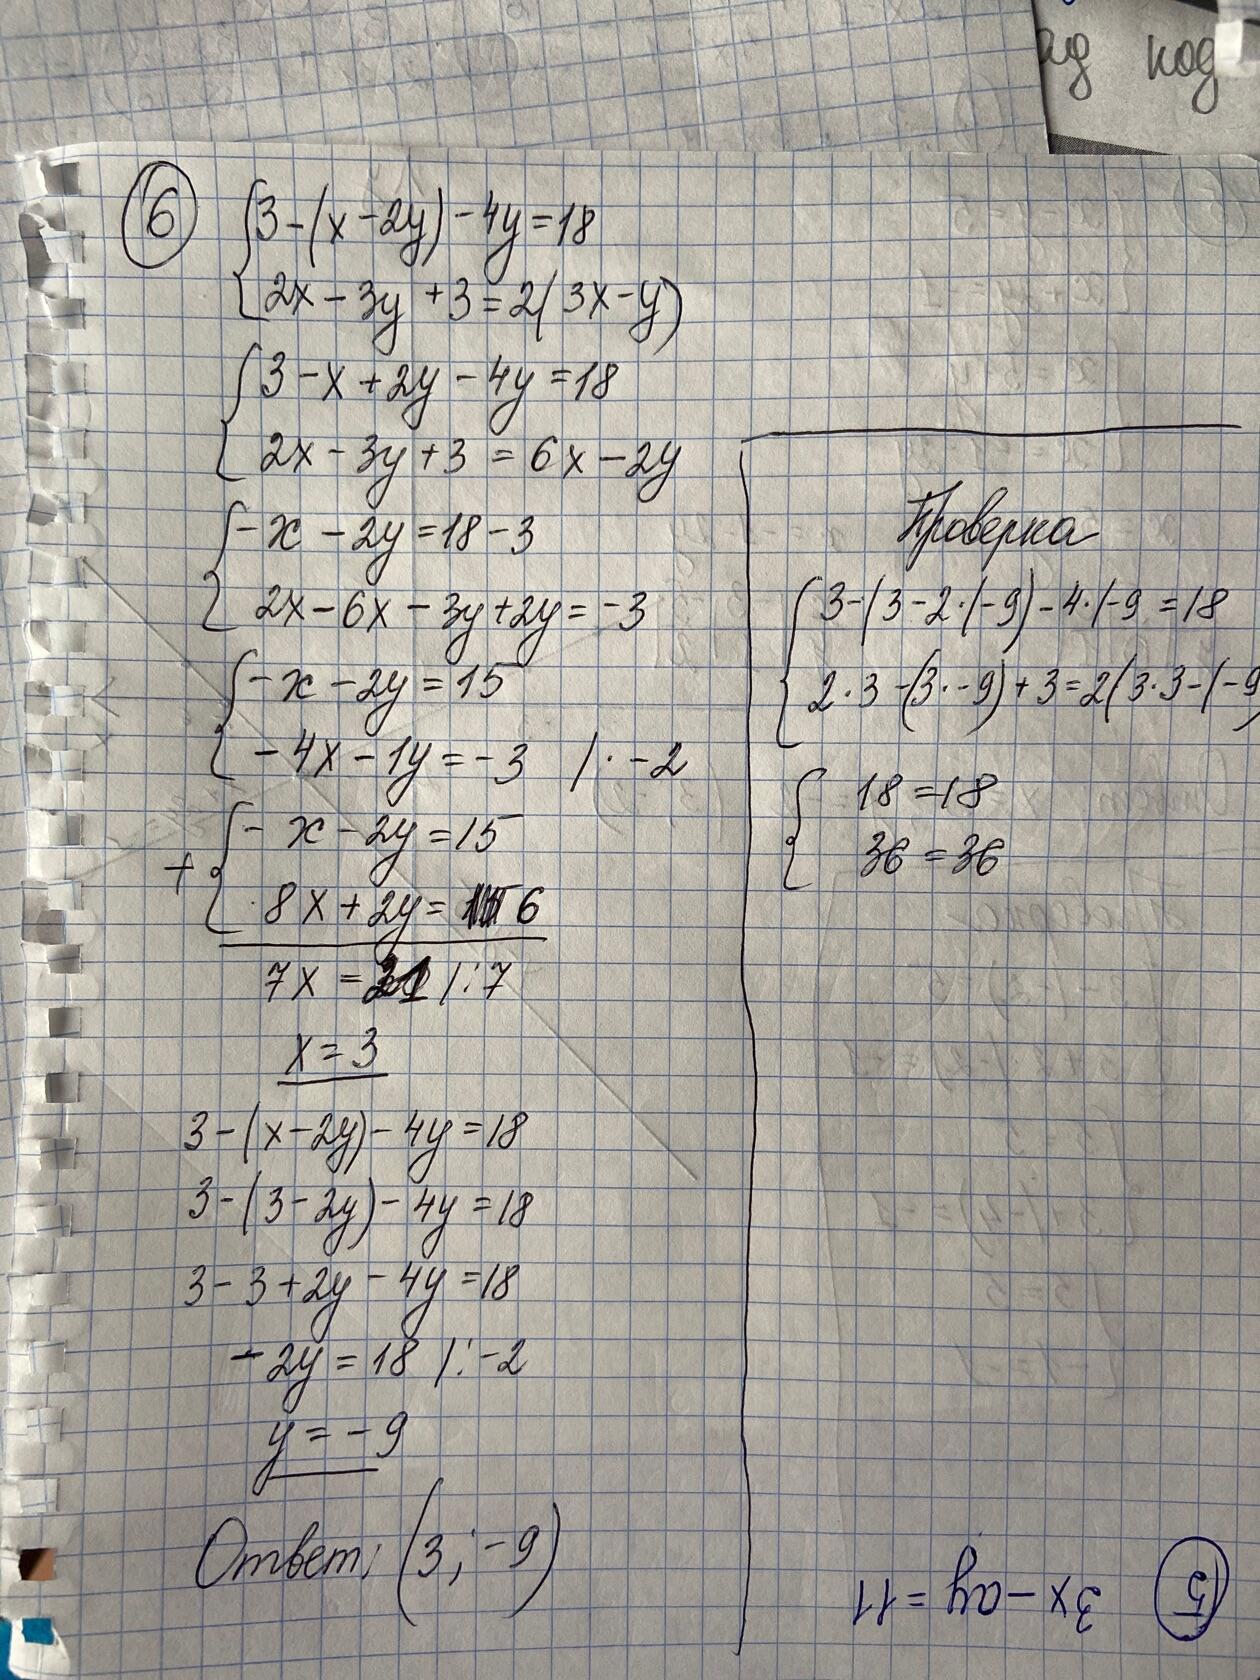 ад код
6
3-(x-2y)-4y=18
2x-3y+3=2(3x-y)
3-x+2y-4y=18
2x-3y+3=6x-2y
-x-2y=18-3
2x-6x-3y+2y=-3
-x-2y=15
-4x-1y=-3 |·-2
+
-x-2y=15
8x+2y=6
7x=21 |:7
x=3
3-(x-2y)-4y=18
3-(3-2y)-4y=18
3-3+2y-4y=18
-2y=18 |:-2
y=-9
Ответ: (3;-9)
Проверка
3-(3-2·(-9)-4·(-9=18
2·3-(3·-9)+3=2(3·3-(-9)
18=18
36=36
5 3x-ay=11